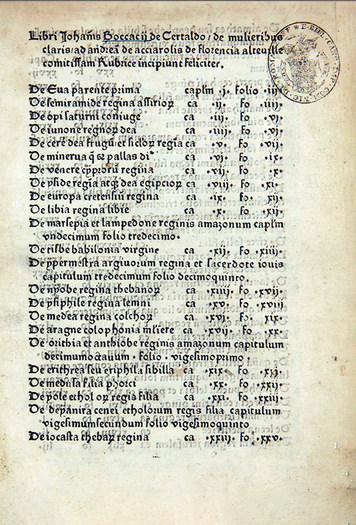 Libri Johanis Boccacij de Certaldo de mulieribus
claris ad andream de acciarolis de florencia alteuille
comitissam Rubrice incipiunt feliciter.
De Eua parente prima capłm .j. folio .iij.
De semiramide regina assirioꝝ ca .ij. fo .iij.
De opi saturni coniuge ca .iij. fo .vj.
De iunone regnoꝝ dea ca .iiij. fo .vj.
De cerere dea frugū et siculoꝝ regīa ca .v. fo .vj.
De minerua ca .vj. fo .vij.
De venere cyprioꝝ regina ca .vij. fo .x.
De yside regīa atqꝫ dea egipcioꝝ ca .viij. fo .x.
De europa cretensiū regina ca .ix. fo .xj.
De libia regina libie ca .x. fo .xij.
De marsepia et lampedone reginis amazonum capłm
vndecimum folio tredecimo.
De tisbe babilonia virgine ca .xij. fo .xiij.
De ypermestra argiuorum regina et sacerdote iouis
capitulum tredecimum folio decimoquinto.
De nyobe regina thebanoꝝ ca .xiiij. fo .xvij.
De ysiphile regina lemni ca .xv. fo .xviij.
De medea regina colchoꝝ ca .xvj. fo .xix.
De aragne colophonia mĺiere ca .xvij. fo .xx.
De orithia et anthiobe reginis amazonum capitulum
decimumoctauum . folio . vigesimoprimo .
De erithrea seu eriphila sibilla ca .xix. fo .xxj.
De medusa filia phorci ca .xx. fo .xxij.
De yole etholoꝝ regis filia ca .xxj. fo .xxiij.
De deyanira oenei etholorum regis filia capitulum
vigesimumsecundum folio vigesimoquinto
De iocasta thebaꝝ regina ca .xxiij. fo .xxv.